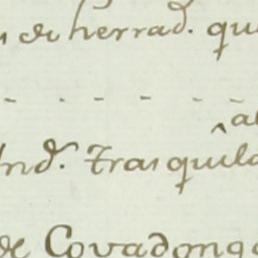 de herrad. qu
^a
Ind.^e Trasquila
de Covadonga